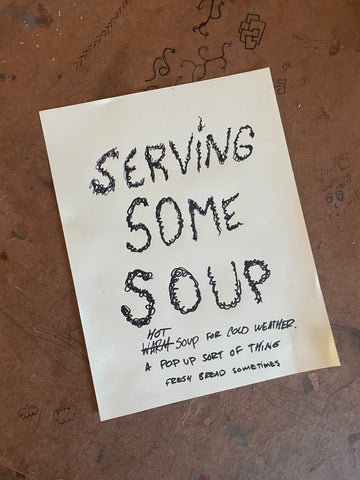 SERVING
SOME
SOUP
HOT
WARM SOUP FOR COLD WEATHER.
A POP UP SORT OF THING
FRESH BREAD SOMETIMES